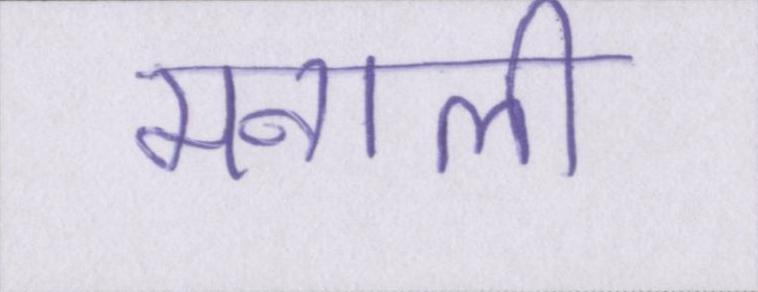 मनाली